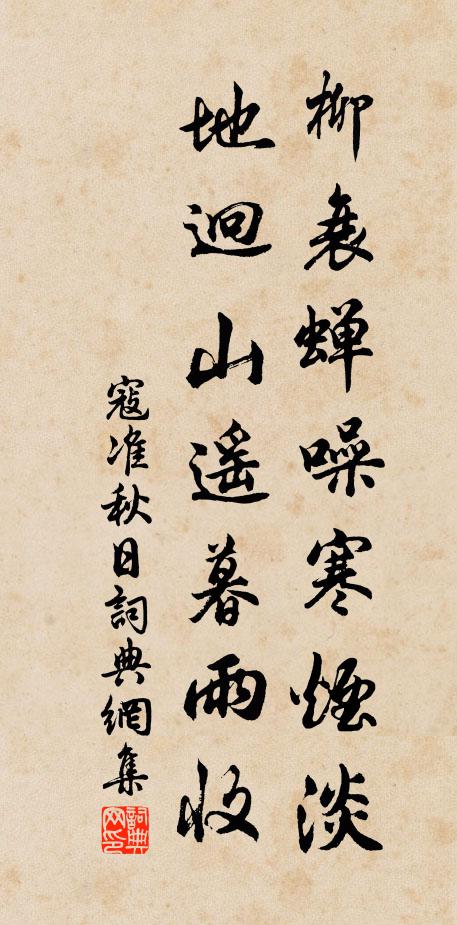 柳衰蝉噪寒煙淡
地迥山遥暮雨收
寇准秋日詞典網集
詞典网印